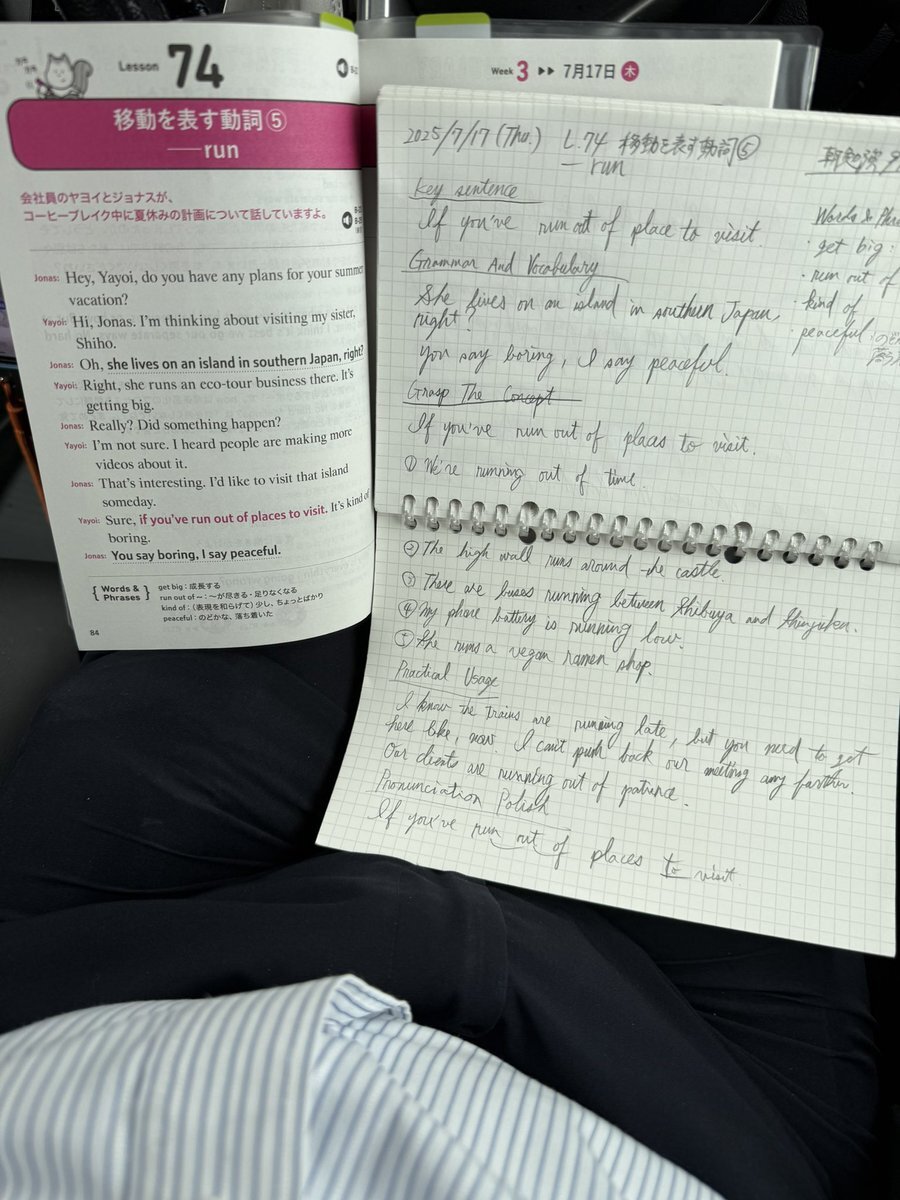 Lesson 74
移動を表す動詞⑤
──run
会社員のヤヨイとジョナスが、
コーヒーブレイク中に夏休みの計画について話していますよ。
Jonas: Hey, Yayoi, do you have any plans for your summer
vacation?
Yayoi: Hi, Jonas. I'm thinking about visiting my sister,
Shiho.
Jonas: Oh, she lives on an island in southern Japan, right?
Yayoi: Right, she runs an eco-tour business there. It's
getting big.
Jonas: Really? Did something happen?
Yayoi: I'm not sure. I heard people are making more
videos about it.
Jonas: That's interesting. I'd like to visit that island
someday.
Yayoi: Sure, if you've run out of places to visit. It's kind of
boring.
Jonas: You say boring, I say peaceful.
Words &
Phrases
get big：成長する
run out of ～：～が尽きる・足りなくなる
kind of：（表現を和らげて）少し、ちょっとばかり
peaceful：のどかな、落ち着いた
84
Week 3 ▶▶ 7月17日 木
2025/7/17 (Thu.) L.74 移動を表す動詞⑤
― run
Key sentence
If you've run out of place to visit.
Grammar And Vocabulary
She lives on an island in southern Japan,
right?
You say boring, I say peaceful.
Grasp The Concept
If you've run out of places to visit.
① We're running out of time.
② The high wall runs around the castle.
③ There are buses running between Shibuya and Shinjuku.
④ My phone battery is running low.
⑤ She runs a vegan ramen shop.
Practical Usage
I know the trains are running late, but you need to get
here like, now. I can't push back our meeting any farther.
Our clients are running out of patience.
Pronunciation Polish
If you've run out of places to visit
朝勉強
Words & Phra
・get big :
・run out of
・kind of
peaceful :